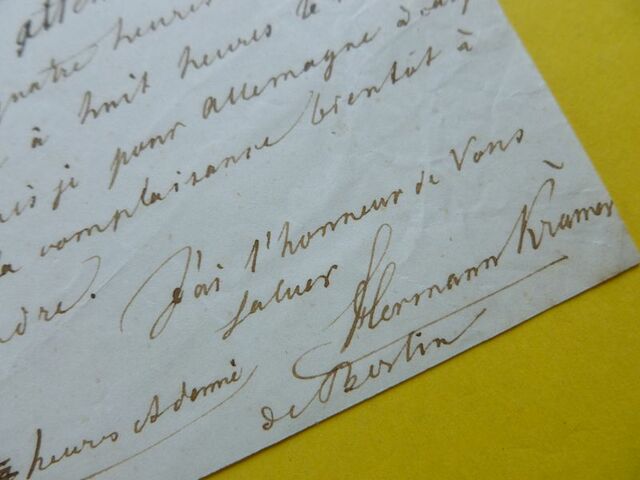 quatre heures
à huit heures le
je pour Allemagne
la complaisance bientôt à
J'ai l'honneur de Vous
saluer
Hermann Krämer
de Berlin
heures et demie